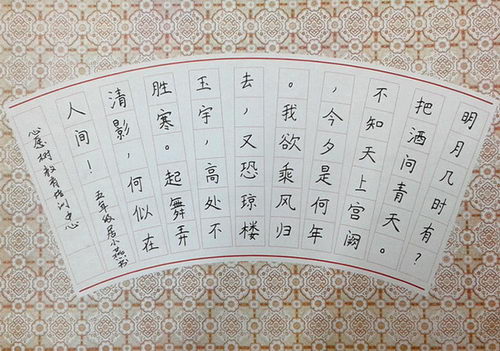 明月几时有？
把酒问青天。
不知天上宫阙
，今夕是何年
。我欲乘风归
去，又恐琼楼
玉宇，高处不
胜寒。起舞弄
清影，何似在
人间！
五年级
心愿树教育培训中心